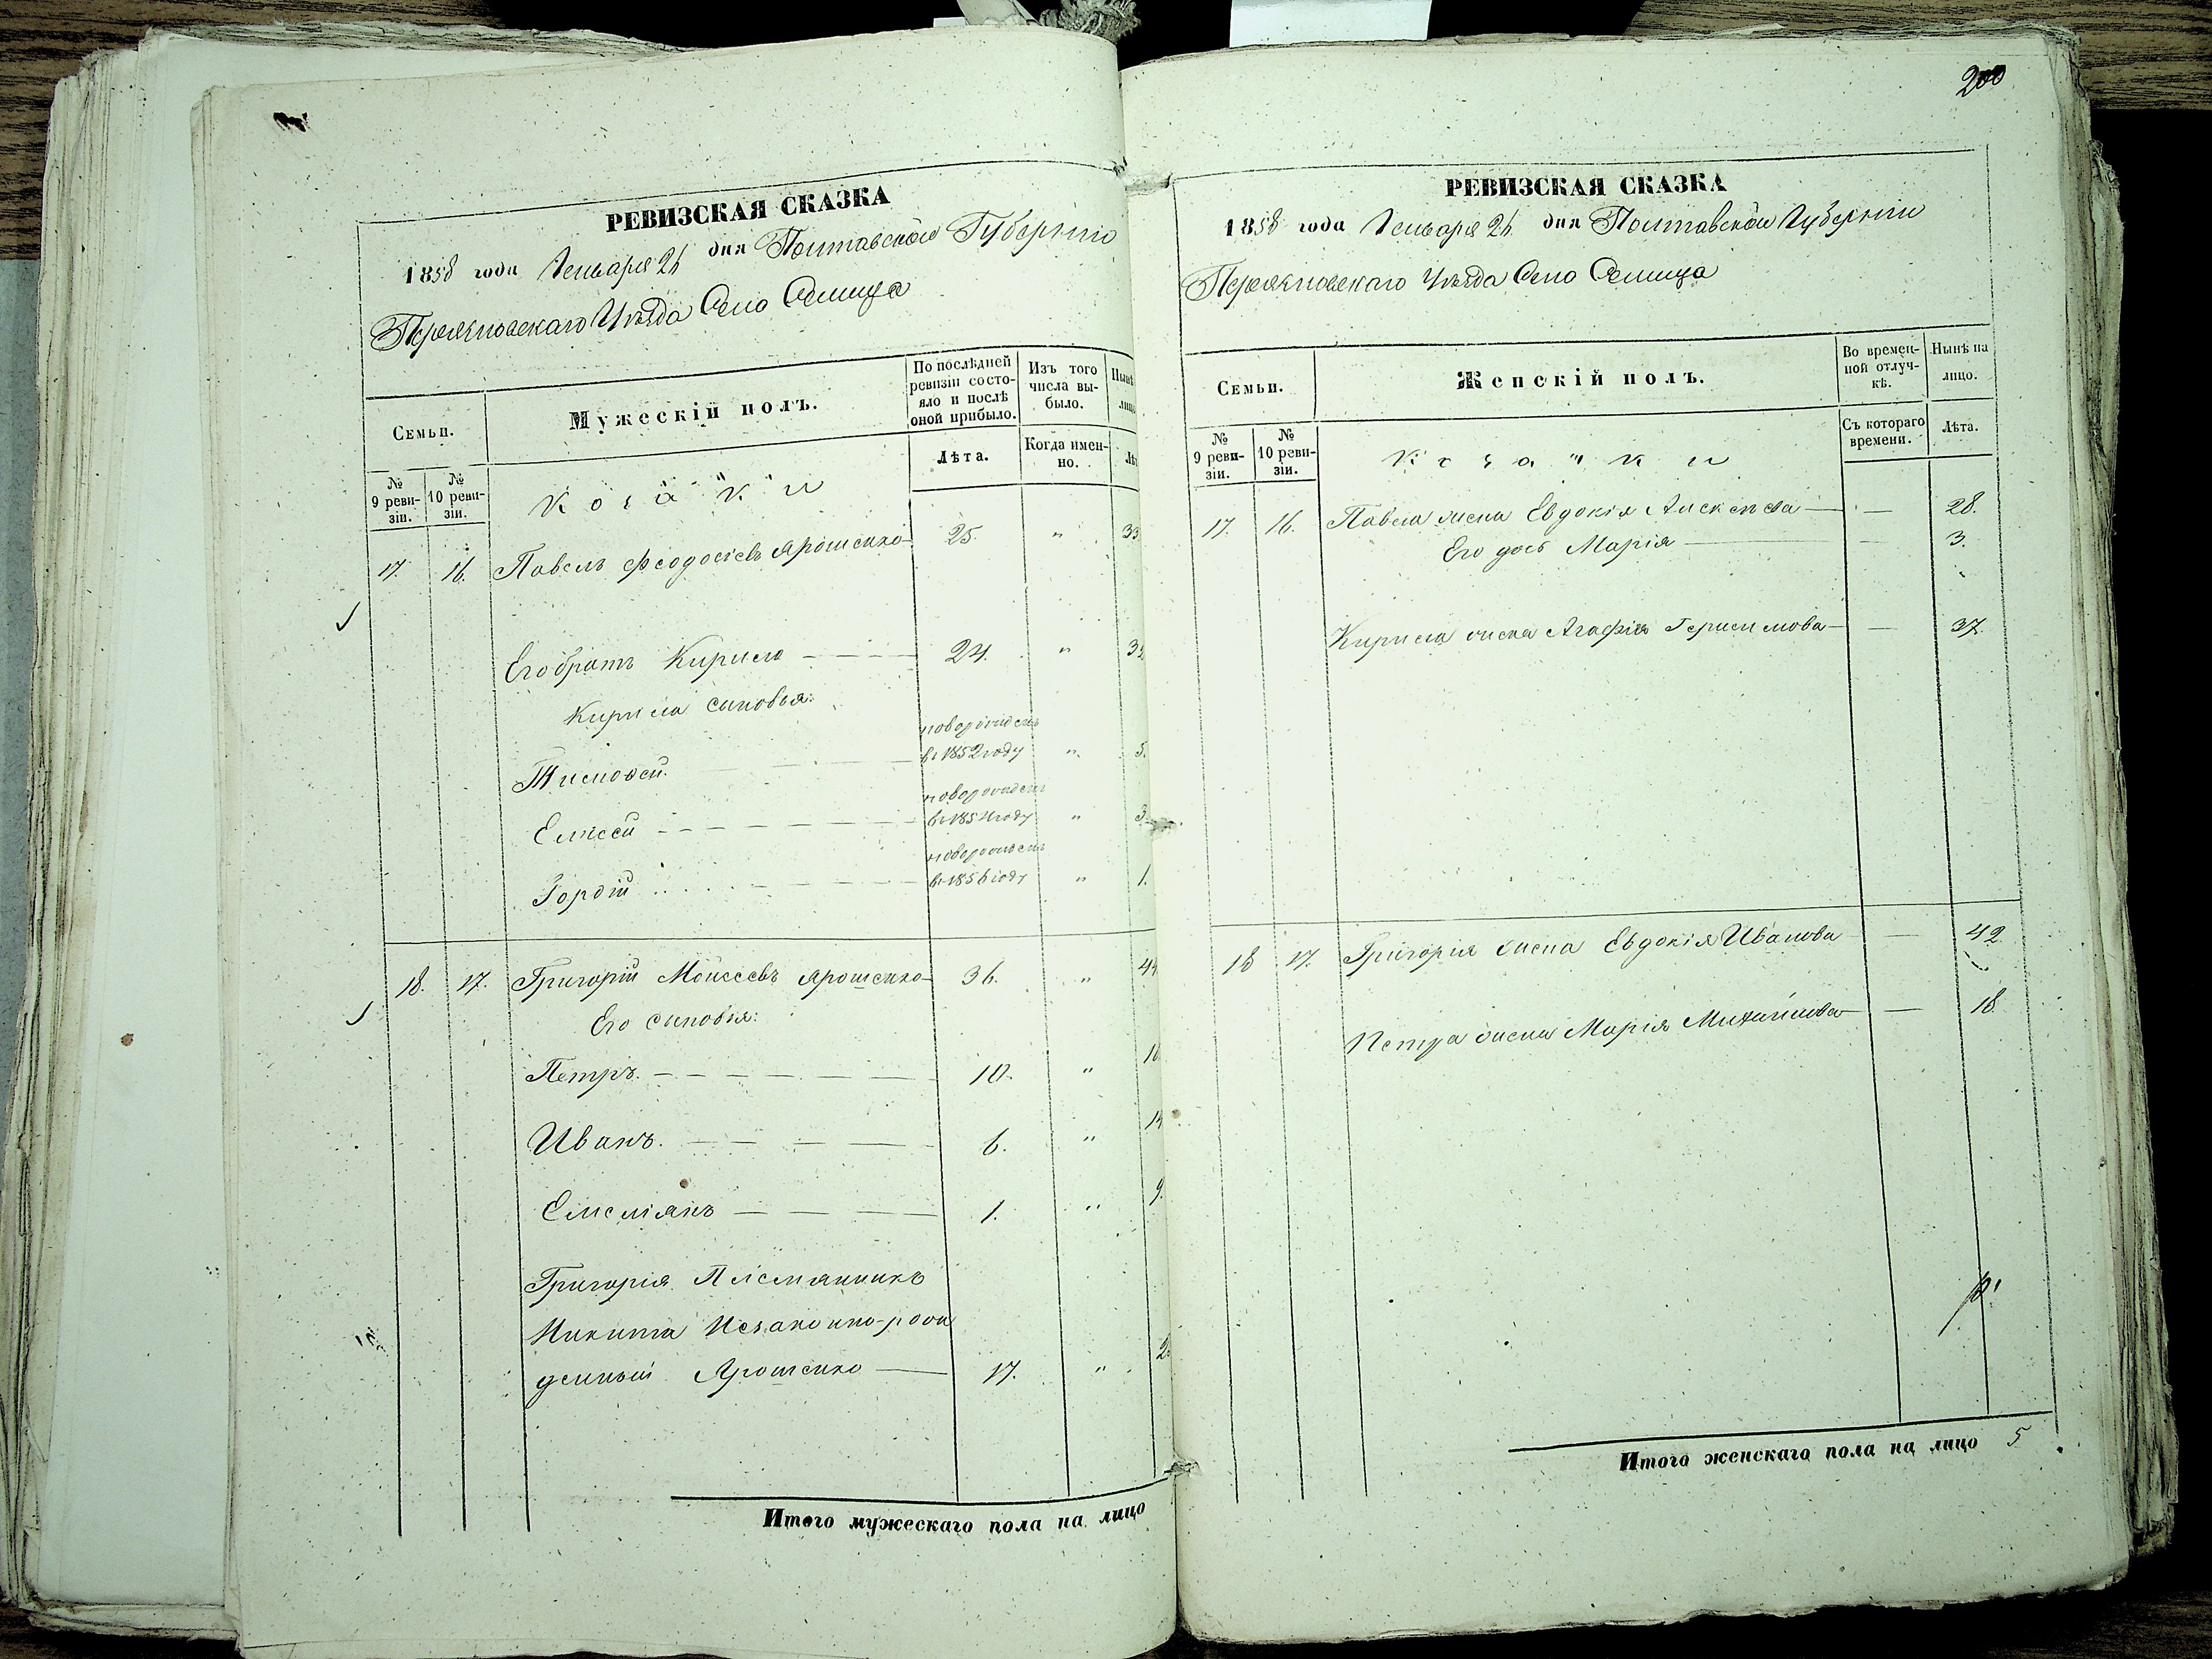 РЕВИЗСКАЯ СКАЗКА
1858 года Генваря 21 дня Полтавской Губернiи
Переяславскаго Уѣзда Село Селища
Семьи.
Мужескiй полъ.
По послѣдней ревизiи состо-
яло и послѣ
оной прибыло.
Изъ того
числа вы-
было.
Нынѣ
лицо
№
9 реви-
зiи.
№
10 реви-
зiи.
Козаки
Лѣта.
Когда имен-
но.
Лѣ
17. 16. Павелъ Феодосiевъ Ярошенко 25. " 33
Его братъ Кирило 24. " 32
Кирила сыновья:
Тимофей новорожденъ
въ 1852 году " 5.
Елисей новорожденъ
въ 1854 году " 3.
Гордiй новорожденъ
въ 1856 году " 1.
18. 17. Григорiй Моисеевъ Ярошенко 36. " 44
Его сыновья:
Петръ. 10. " 18
Иванъ. 6. " 14
Емелiянъ 1. " 9.
Григорiя Племянникъ
Никита Незаконно-рож
денный Ярошенко 17. " 2
Итого мужескаго пола на лицо
200
РЕВИЗСКАЯ СКАЗКА
1858 года Генваря 21 дня Полтавской Губернiи
Переяславскаго Уѣзда Село Селища
Семьи.
Женскiй полъ.
Во времен-
ной отлуч-
кѣ.
Нынѣ на
лицо.
№
9 реви-
зiи.
№
10 реви-
зiи.
Козачки
Съ котораго
времени.
Лѣта.
17. 16. Павла жена Евдокiя Алексѣева — 28.
Его дочь Марiя — 3.
Кирила жена Агафiя Герасимова — 37.
18 17. Григорiя жена Евдокiя Иванова — 42
Петра жена Марiя Михайлова — 18.
Итого женскаго пола на лицо 5